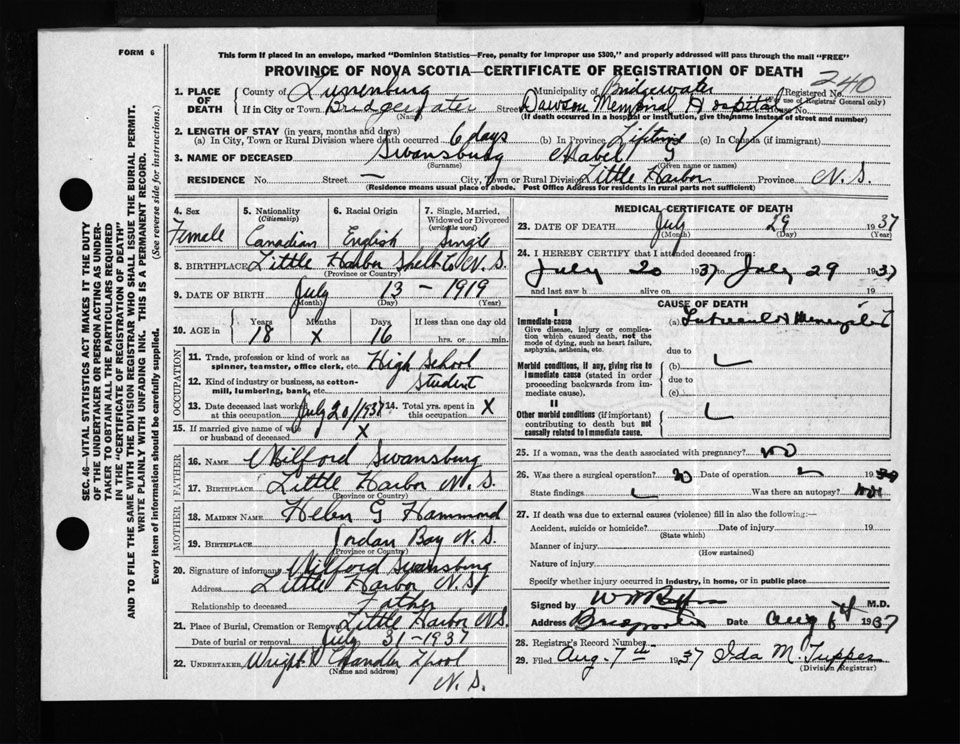 FORM 6
This form if placed in an envelope, marked "Dominion Statistics—Free, penalty for improper use $300," and properly addressed will pass through the mail "FREE"
PROVINCE OF NOVA SCOTIA—CERTIFICATE OF REGISTRATION OF DEATH
240
1. PLACE OF DEATH County of Lunenburg Municipality of Bridgewater Registered No. (For use of Registrar General only)
If in City or Town Bridgewater (Name) Street Dawson Memorial Hospital House No.
(If death occurred in a hospital or institution, give the name instead of street and number)
2. LENGTH OF STAY (in years, months and days)
(a) In City, Town or Rural Division where death occurred 6 days (b) In Province Lifetime (c) In Canada (if immigrant)
3. NAME OF DECEASED Swansburg Mabel G
(Surname) (Given name or names)
RESIDENCE No. Street — City, Town or Rural Division Little Harbor Province N.S.
(Residence means usual place of abode. Post Office Address for residents in rural parts not sufficient)
SEC. 46—VITAL STATISTICS ACT MAKES IT THE DUTY OF THE UNDERTAKER OR PERSON ACTING AS UNDERTAKER TO OBTAIN ALL THE PARTICULARS REQUIRED IN THE "CERTIFICATE OF REGISTRATION OF DEATH"
AND TO FILE THE SAME WITH THE DIVISION REGISTRAR WHO SHALL ISSUE THE BURIAL PERMIT.
WRITE PLAINLY WITH UNFADING INK. THIS IS A PERMANENT RECORD.
Every item of information should be carefully supplied. (See reverse side for instructions.)
4. Sex Female
5. Nationality (Citizenship) Canadian
6. Racial Origin English
7. Single, Married, Widowed or Divorced (write the word) Single
8. BIRTHPLACE Little Harbor Shelb Co N.S.
(Province or Country)
9. DATE OF BIRTH July 13 - 1919
(Month) (Day) (Year)
10. AGE in Years 18 Months X Days 16 If less than one day old hrs. or min.
OCCUPATION
11. Trade, profession or kind of work as spinner, teamster, office clerk, etc. High School
12. Kind of industry or business, as cotton-mill, lumbering, bank, etc. Student
13. Date deceased last worked at this occupation July 20/1937 14. Total yrs. spent in this occupation X
15. If married give name of wife or husband of deceased X
FATHER
16. NAME Wilford Swansburg
17. BIRTHPLACE Little Harbor N.S.
(Province or Country)
MOTHER
18. MAIDEN NAME Helen G Hammond
19. BIRTHPLACE Jordan Bay N.S.
(Province or Country)
20. Signature of informant Wilford Swansburg
Address Little Harbor N.S
Relationship to deceased Father
21. Place of Burial, Cremation or Removal Little Harbor N.S.
Date of burial or removal July 31-1937
22. UNDERTAKER Wright
(Name and address)
N.S.
MEDICAL CERTIFICATE OF DEATH
23. DATE OF DEATH July 29 1937
(Month) (Day) (Year)
24. I HEREBY CERTIFY that I attended deceased from
July 20 1937 to July 29 1937
and last saw h alive on 19
CAUSE OF DEATH
I
Immediate cause (a)
Give disease, injury or complication which caused death, not the mode of dying, such as heart failure, asphyxia, asthenia, etc.
due to
Morbid conditions, if any, giving rise to immediate cause (stated in order proceeding backwards from immediate cause). (b)
due to
(c)
II
Other morbid conditions (if important) contributing to death but not causally related to immediate cause.
25. If a woman, was the death associated with pregnancy? no
26. Was there a surgical operation? no Date of operation 19
State findings Was there an autopsy?
27. If death was due to external causes (violence) fill in also the following:—
Accident, suicide or homicide? Date of injury 19
(State which)
Manner of injury
(How sustained)
Nature of injury
Specify whether injury occurred in industry, in home, or in public place
Signed by M.D.
Address Bridgewater Date Aug 6 1937
28. Registrar's Record Number
29. Filed Aug. 7th 1937 Ida M. Tupper
(Division Registrar)